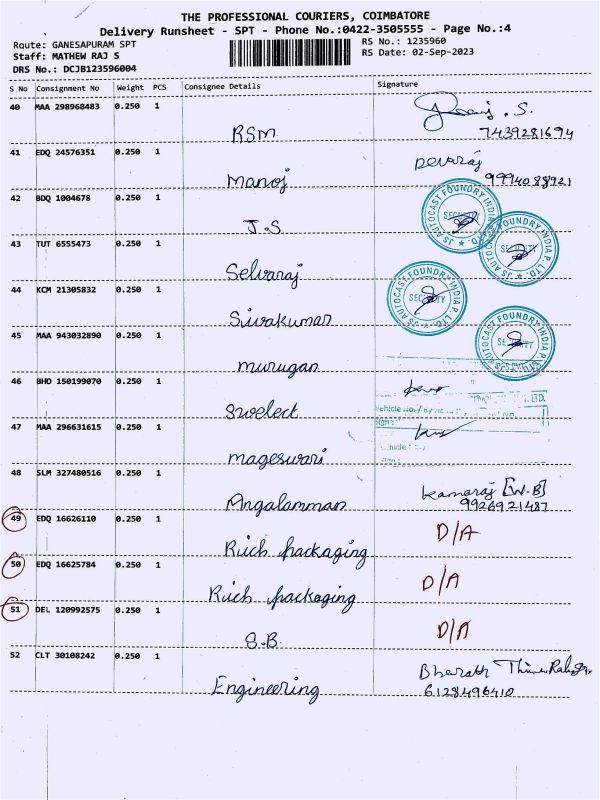 THE PROFESSIONAL COURIERS, COIMBATORE
Delivery Runsheet - SPT - Phone No.:0422-3505555 - Page No.:4
Route: GANESAPURAM SPT
RS No.: 1235960
Staff: MATHEW RAJ S
RS Date: 02-Sep-2023
DRS No.: DCJB123596004
S No Consignment No Weight PCS Consignee Details Signature
40 MAA 298968483 0.250 1
RSM 7439281694
41 EDQ 24576351 0.250 1 Devaraj
Manoj 9994088921
42 BDQ 1004678 0.250 1
J.S
JS AUTOCAST FOUNDRY INDIA P. LTD. SECURITY
43 TUT 6555473 0.250 1
Selvaraj
JS AUTOCAST FOUNDRY INDIA P. LTD. SECURITY
44 KCM 21305832 0.250 1
Sivakumar
JS AUTOCAST FOUNDRY INDIA P. LTD. SECURITY
45 MAA 943032890 0.250 1
murugan
JS AUTOCAST FOUNDRY INDIA P. LTD. SECURITY
46 BHO 150199070 0.250 1
Swelect
47 MAA 296631615 0.250 1
mageswari
48 SLM 327480516 0.250 1 Kamaraj [W.B]
Angalamman 9926921487
49 EDQ 16626110 0.250 1 D/A
Ruch packaging
50 EDQ 16625784 0.250 1 D/A
Ruch packaging
51 DEL 120992575 0.250 1 D/A
S.B.
52 CLT 30108242 0.250 1 Bharath
Engineering 6128496410